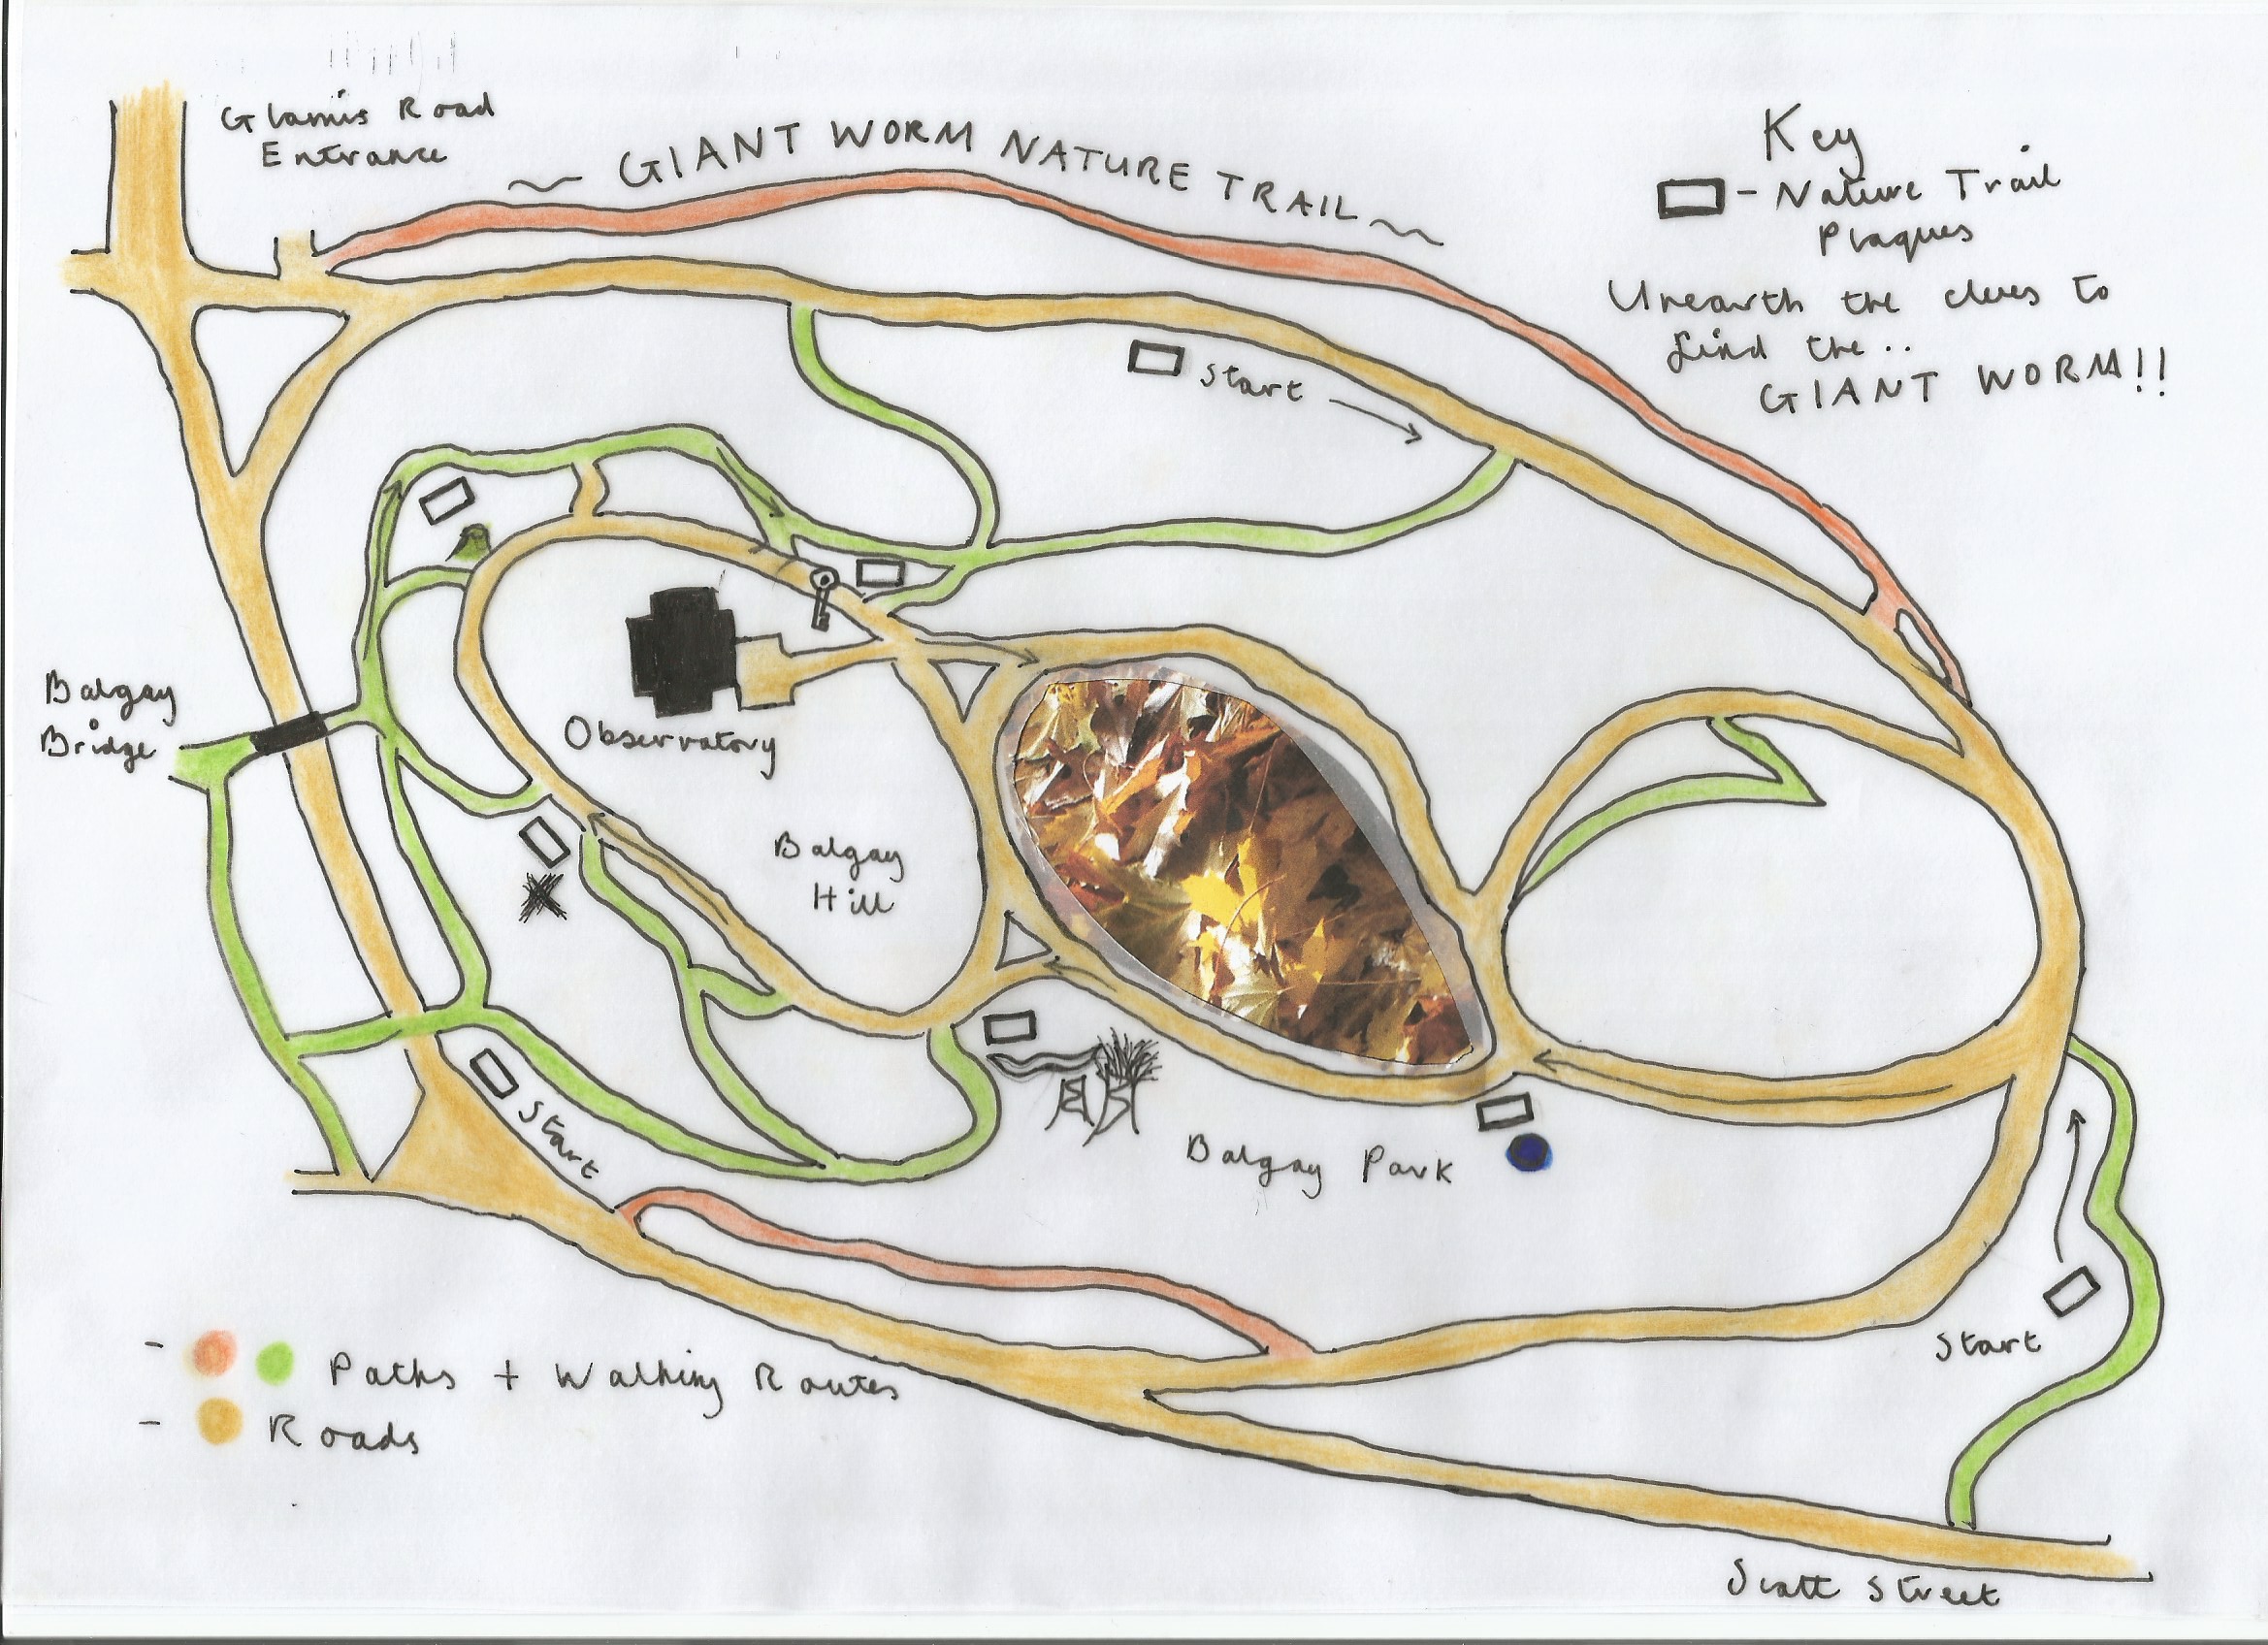 Glamis Road
Entrance
~ GIANT WORM NATURE TRAIL ~
Key
- Nature Trail
Plaques
Unearth the clues to
find the..
GIANT WORM!!
Start
Balgay
Bridge
Observatory
Balgay
Hill
Start
Balgay Park
Start
- Paths + Walking Routes
- Roads
Scott Street